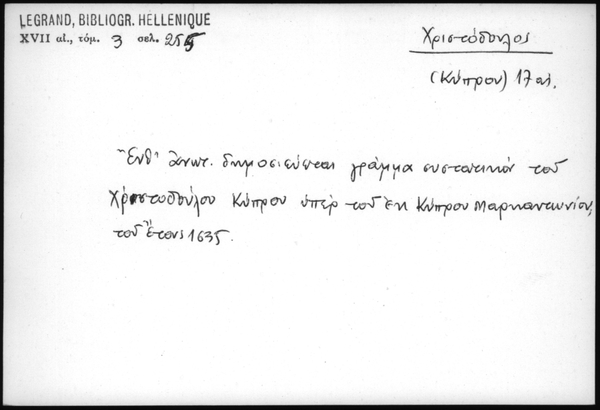 LEGRAND, BIBLIOGR. HELLENIQUE
XVII αἰ., τόμ. 3 σελ. 255
Χριστόδουλος
(Κύπρου) 17 αἰ.
Ἔνθ' ἀνωτ. δημοσιεύεται γράμμα συστατικόν τοῦ
Χριστοδούλου Κύπρου ὑπέρ τοῦ ἐκ Κύπρου Μαρκαντωνίου,
τοῦ ἔτους 1635.